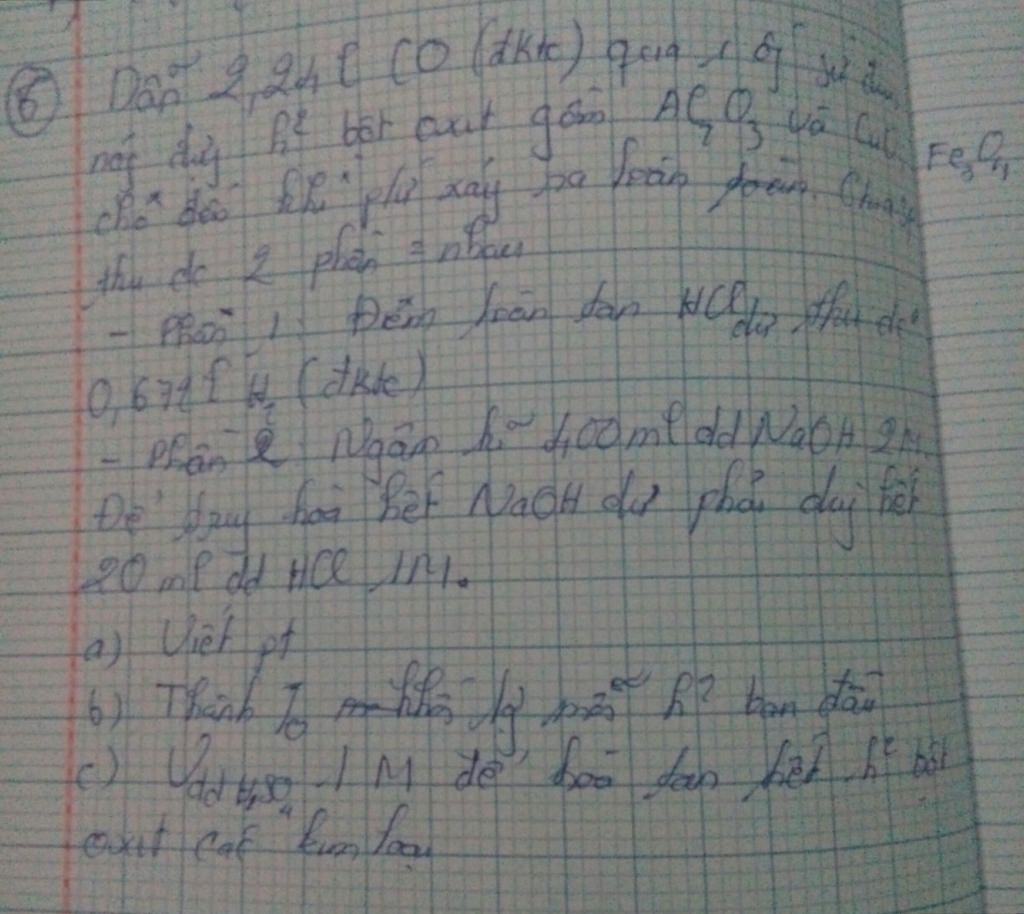 6 Dẫn 2,24 l CO (đktc) qua 1 ống sứ
nóng đựng h² bột oxit gồm Al2O3 và CuO, Fe3O4
cho đến khi phứ xảy ra hoàn toàn. Chia sp
thu dc 2 phần = nhau
- Phần 1 Đem hoàn tan HCl dư thu dc
0,672 l H2 (đktc)
- Phần 2 Ngâm kĩ 400ml dd NaOH 2M
Để trung hoà hết NaOH dư phải dùng hết
20 ml dd HCl 1M.
a) Viết pt
b) Thành % khối lg mỗi h² ban đầu
c) Vdd H2SO4 1M để hoà tan hết h² bột
oxit các kim loại